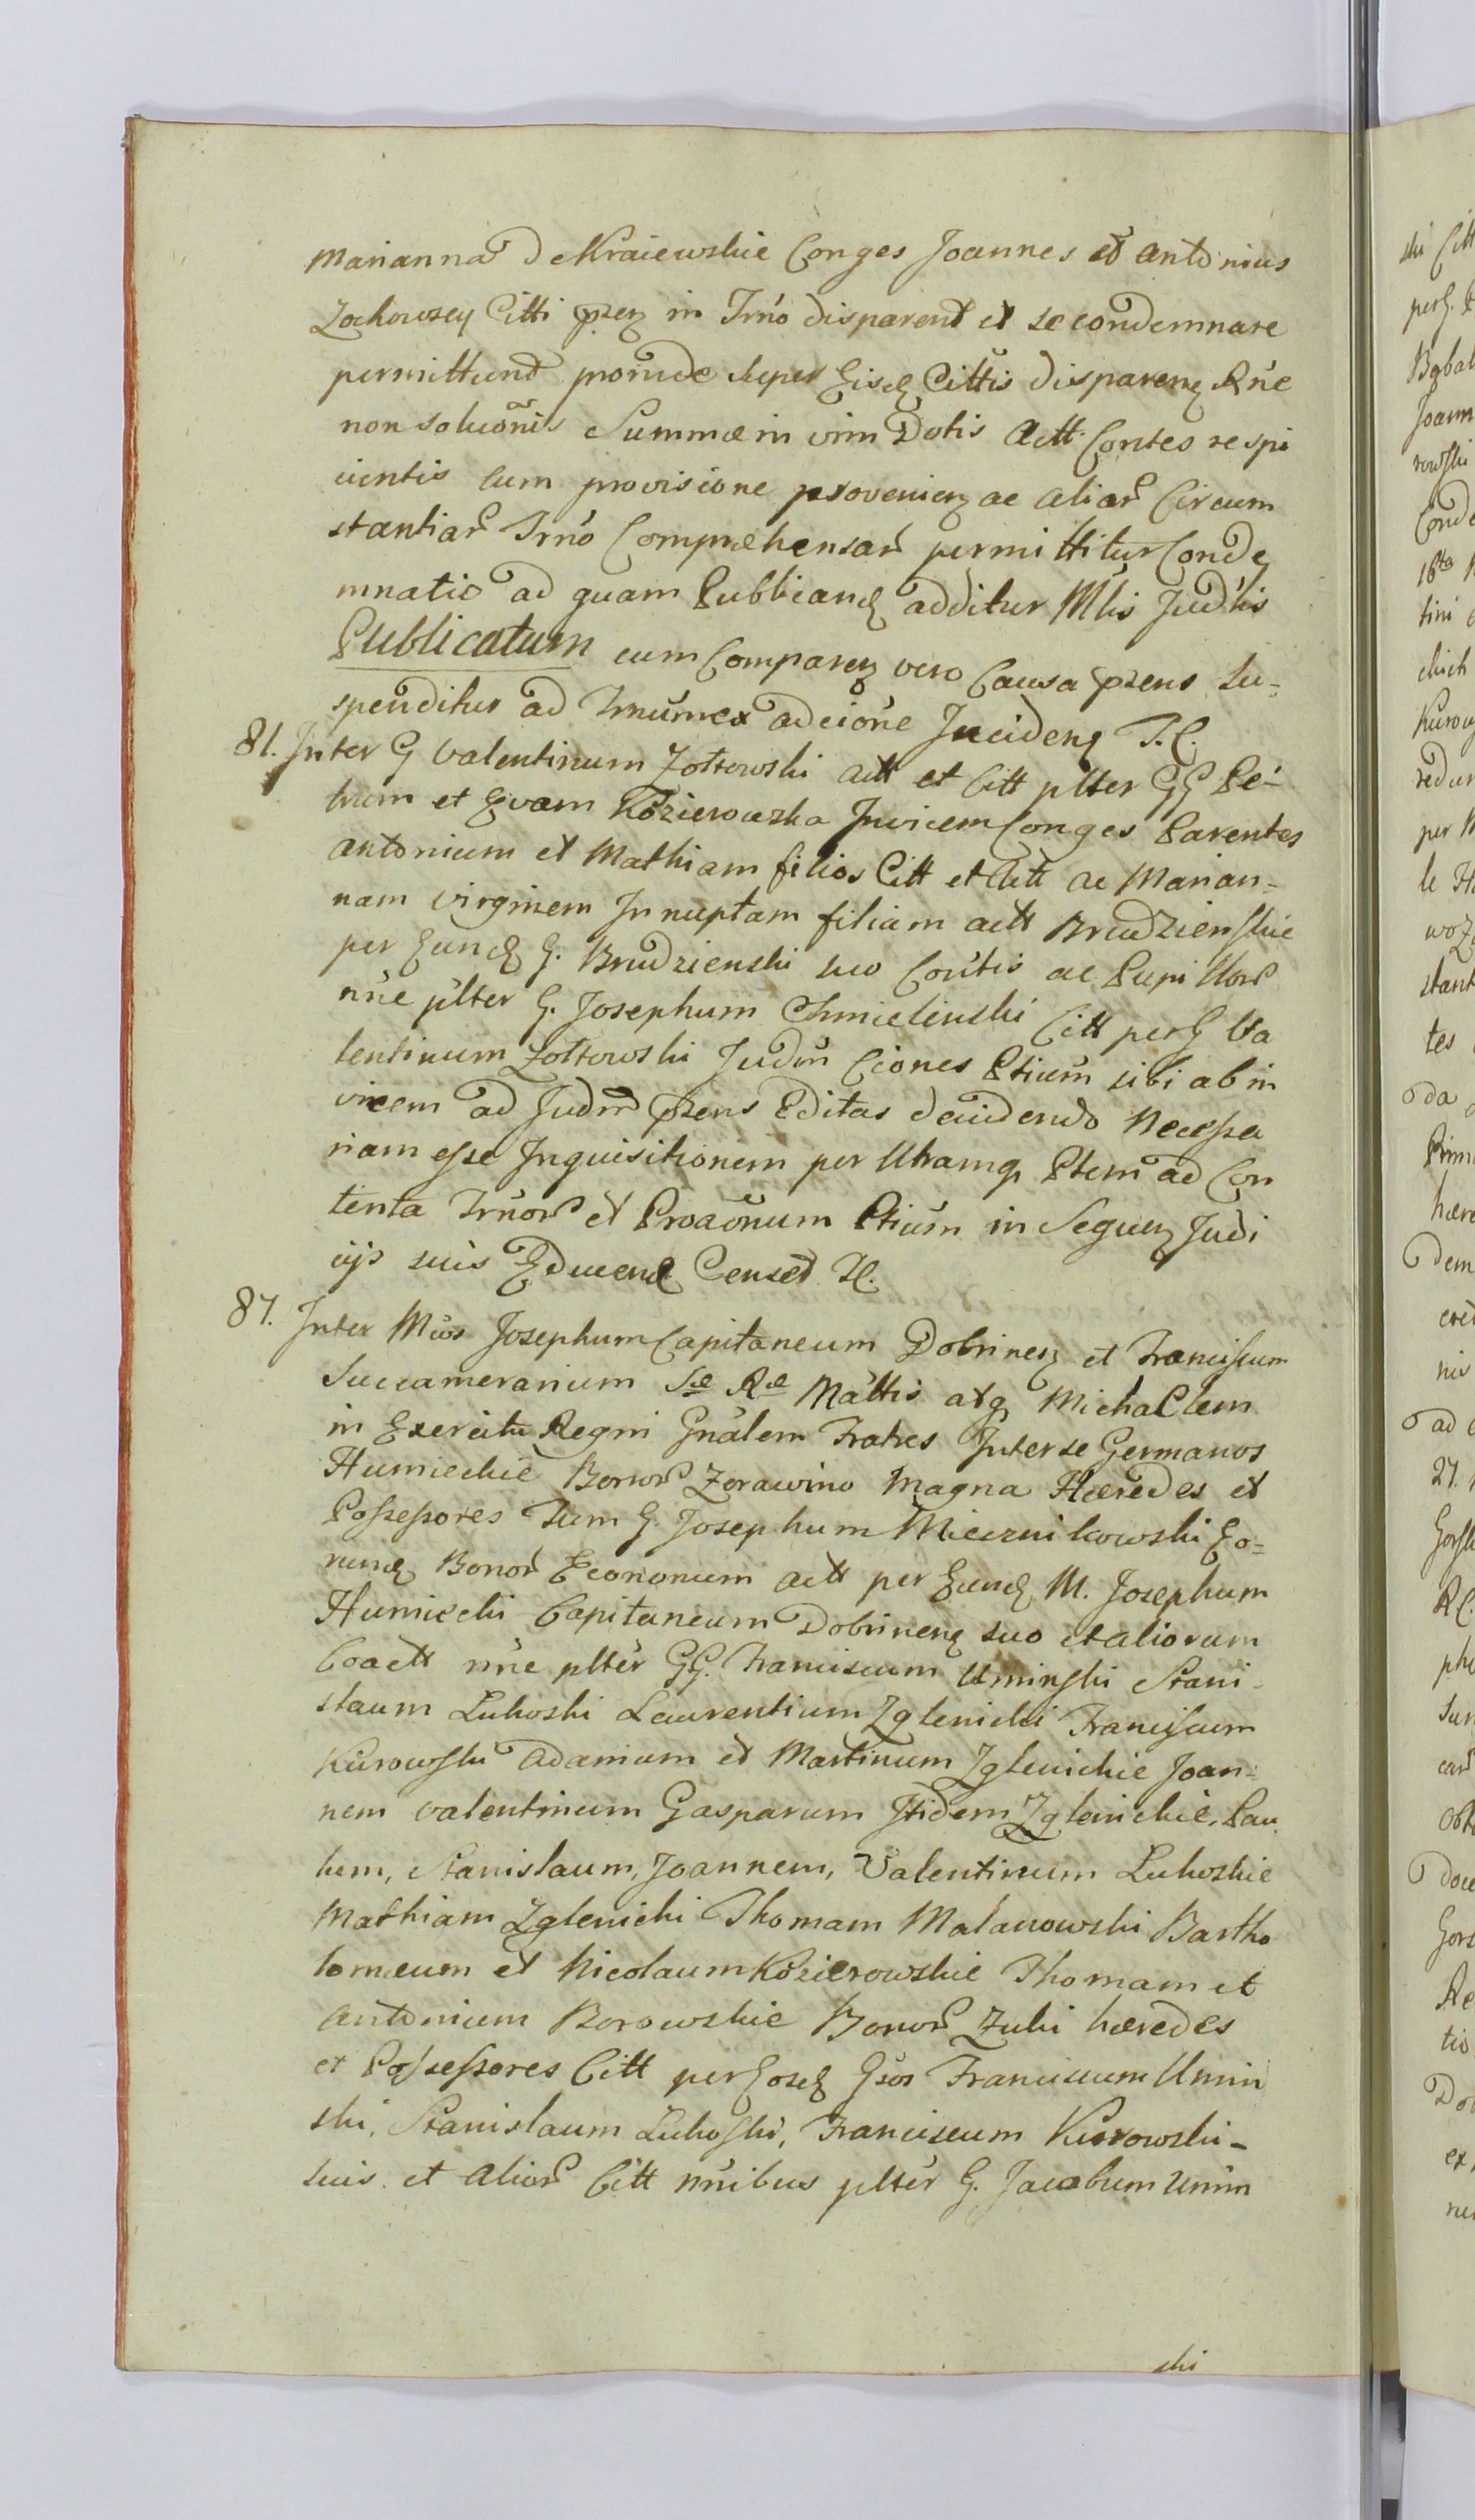 Marianna de Kraiewskie Conges Joannes et Antonius
Zochowscy Citti pñsen in Trno disparent et se condemnare
permittunt proinde super Eisd Cittis disparen Rñe
non soluõnis Summæ in vim Dotis Actt. Contes respi
cientis cum provisione provenien ac aliar Circum
stantiar Trno Comprehensar permittitur Conde
mnatio ad quam Publicand additur Mlis Judlis
Publicatum cum Comparen vero Causa pñsens su-
spenditur ad Trnum ex adcione Inciden T.C.
81. Inter G Valentinum Zottowski actt et Citt plter GG Pe-
trum et Evam Kozierowska Invicem Conges Parentes
Antonium et Mathiam filios Citt et Actt ac Marian-
nam virginem Innuptam filiam actt Brudzienskie
per Eund G. Brudzienski suo Contis ac Pupillor
nñe plter G. Josephum Chmielinski Citt per G Va
lentinum Zottowski Judm Cciones Ptium sibi ab in
vicem ad Judm pñsens Editas decidendo Necessa
riam esse Inquisitionem per Utramq Ptem ad Con
tenta Trnor et Proaõnum Ptium in Sequen Judi
cijs suis Educend Censet TC.
87. Inter Mcos Josephum Capitaneum Dobrinen et Franciscum
Succamerarium Sæ Ræ Mattis atq Michaelem
in Exercitu Regni Gnalem Fratres Inter se Germanos
Humieckie Bonor Zorawino Magna Hæredes et
Possessores Tum G. Josephum Miecznikowski Eo-
rund Bonor Economum actt per Eund M. Josephum
Humiecki Capitaneum Dobrinen suo et aliorum
Coactt nñe plter GG. Franciscum Uminski Stani-
slaum Lukoski Laurentium Zglenicki Franciscum
Kurowski Adamum et Martinum Zglenickie Joan-
nem Valentinum Gasparum Itidem Zglenickie, Pau
lum, Stanislaum, Joannem, Valentinum Lukoskie
Mathiam Zglenicki Thomam Malanowski Bartho
lomæum et Nicolaum Kozierowskie Thomam et
Antonium Borowskie Bonor Zuki hæredes
et Possessores Citt per Eosd Gsos Franciscum Umin
ski, Stanislaum Lukoski, Franciscum Kurowski-
suis et Alior Citt nñibus plter G. Jacobum Umin
ski